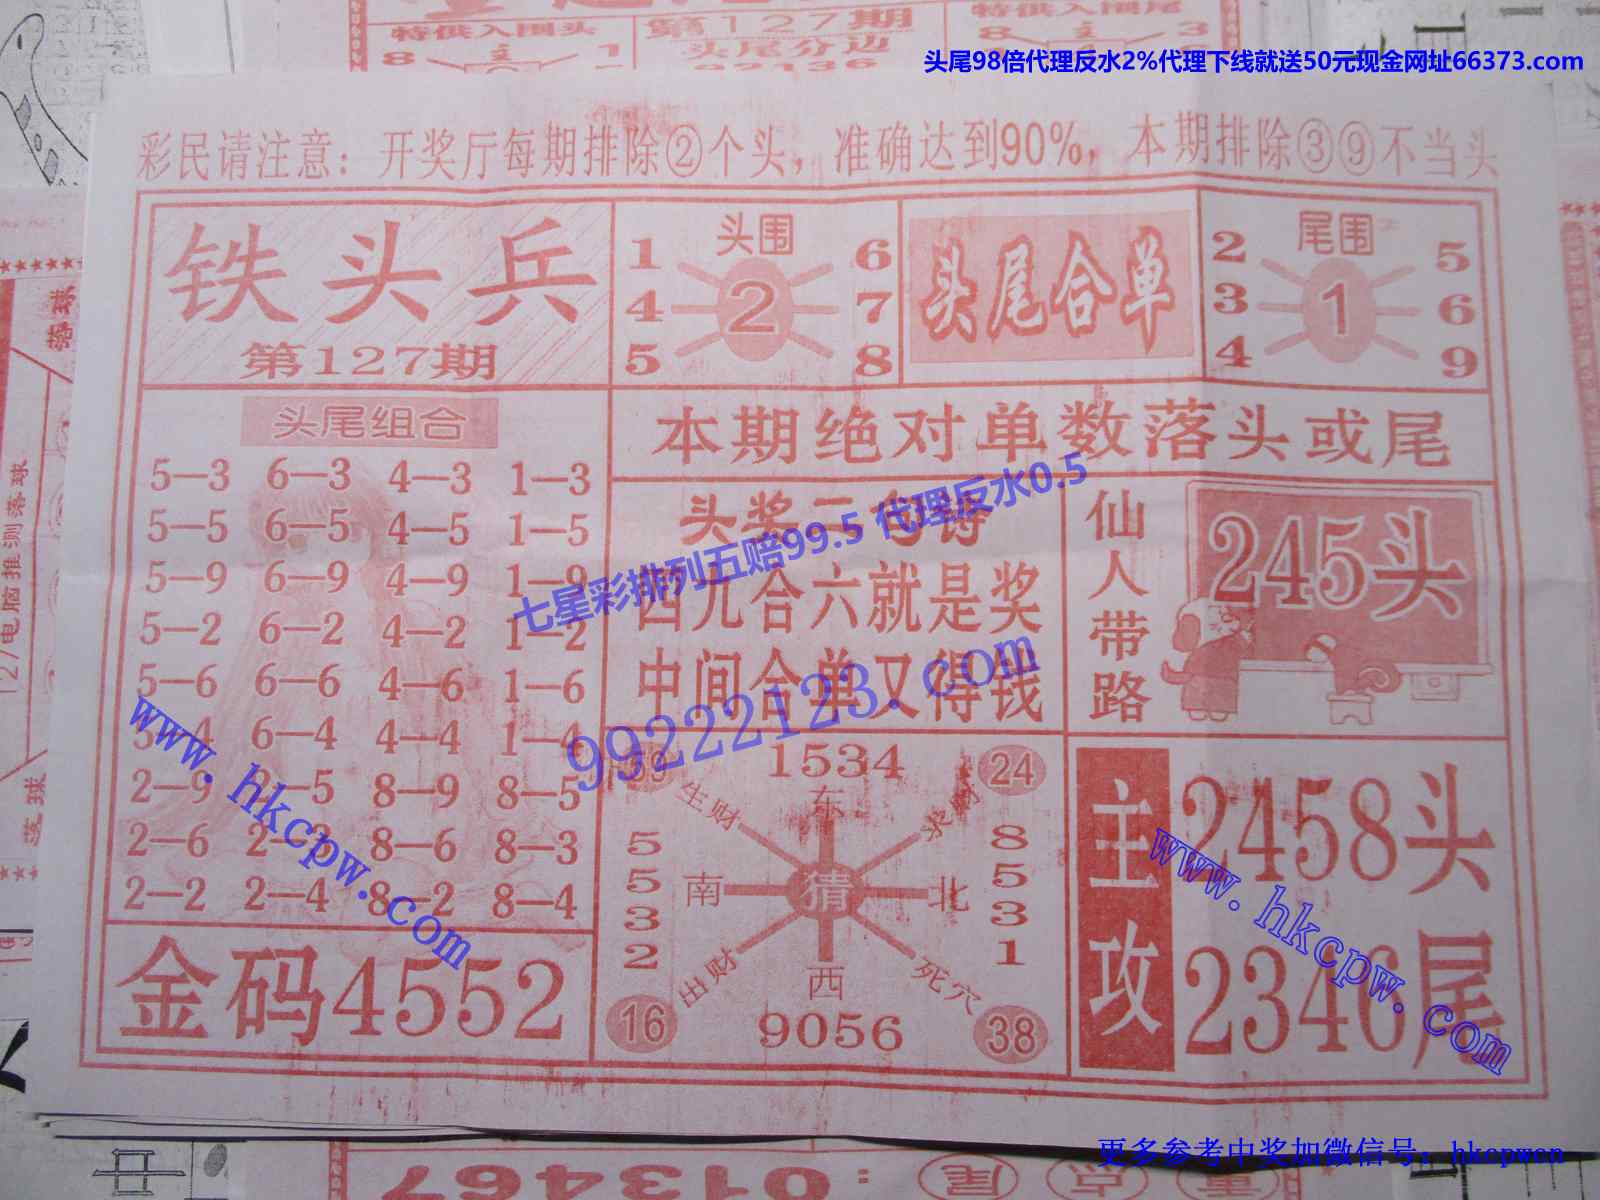 特供入围头
第127期
特供入围尾
8
1
头尾分边
8
3
82136
头尾98倍代理反水2%代理下线就送50元现金网址66373.com
彩民请注意：开奖厅每期排除②个头，准确达到90%，本期排除③⑨不当头
铁头兵
第127期
头围
1 6
4 2 7
5 8
头尾合单
尾围
2 5
3 1 6
4 9
头尾组合
5—3 6—3 4—3 1—3
5—5 6—5 4—5 1—5
5—9 6—9 4—9 1—9
5—2 6—2 4—2 1—2
5—6 6—6 4—6 1—6
5—4 6—4 4—4 1—4
2—9 2—5 8—9 8—5
2—6 2—3 8—6 8—3
2—2 2—4 8—2 8—4
金码4552
本期绝对单数落头或尾
头奖二句诗
四九合六就是奖
中间合单又得钱
仙人带路
245头
1534
24
生财
东
求财
5532
南
猜
北
8531
出财
西
死穴
16
9056
38
主攻
2458头
2346尾
七星彩排列五赔99.5 代理反水0.5
99222123.com
www.hkcpw.com
www.hkcpw.com
127电脑推测落球
013467
尾
更多参考中奖加微信号：hkcpwcn